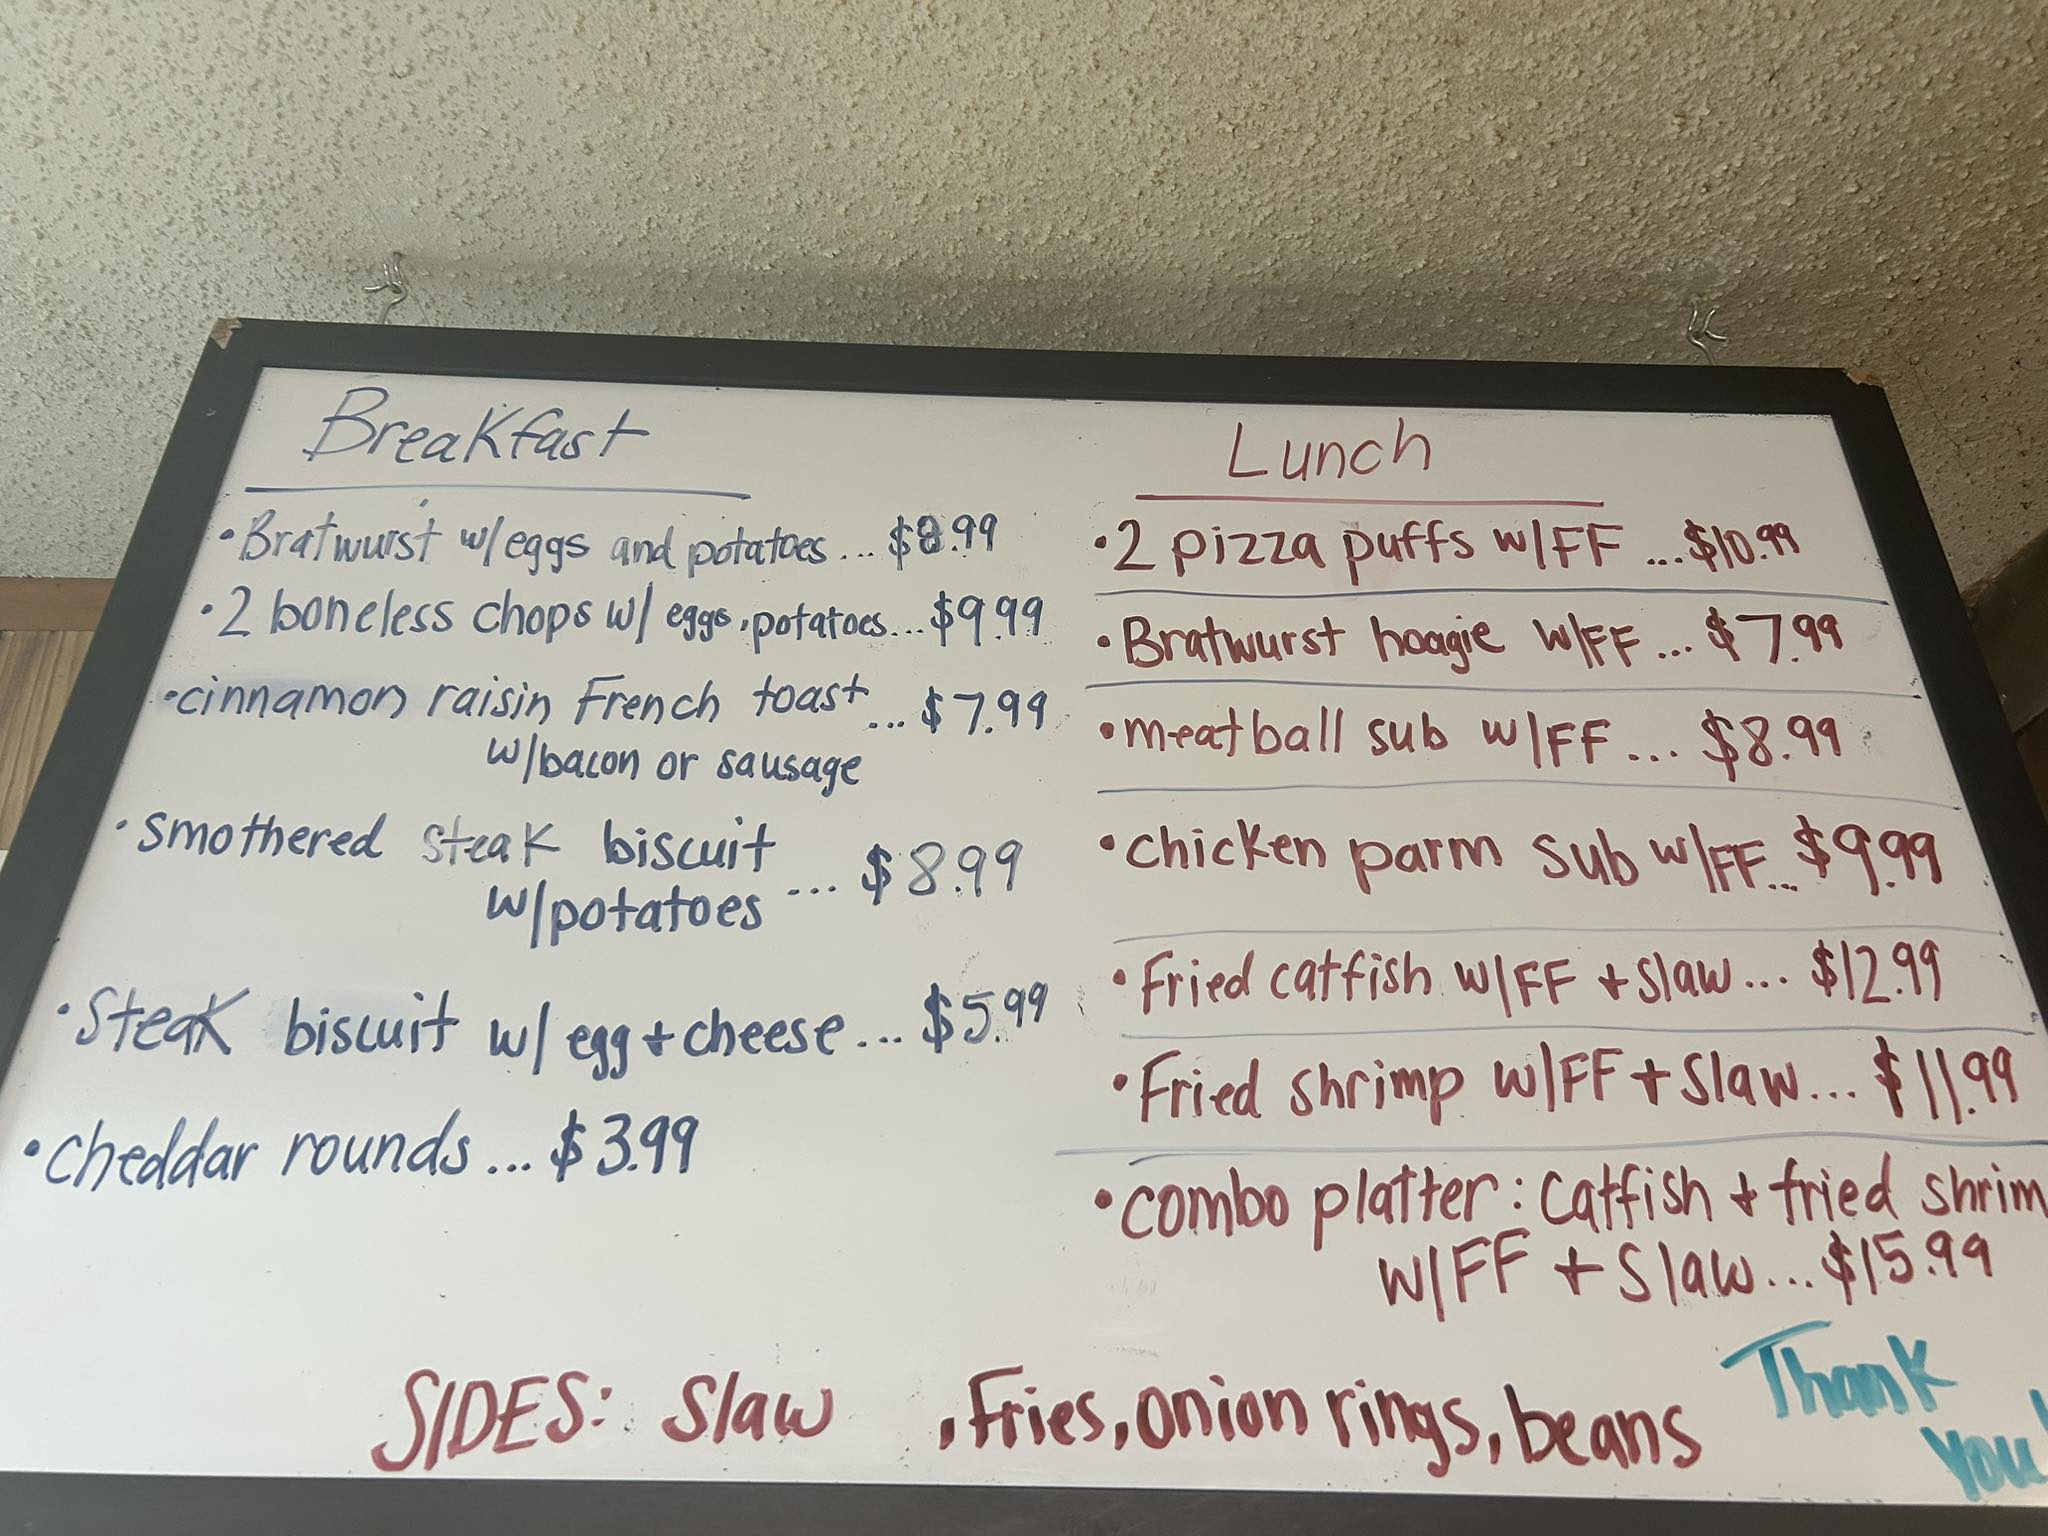 Breakfast
• Bratwurst w/eggs and potatoes... $8.99
• 2 boneless chops w/ eggs, potatoes... $9.99
• cinnamon raisin French toast ... $7.99
w/bacon or sausage
• smothered steak biscuit
w/potatoes ... $8.99
• Steak biscuit w/ egg + cheese... $5.99
• cheddar rounds... $3.99
Lunch
• 2 pizza puffs w/FF ...$10.99
• Bratwurst hoagie w/FF... $7.99
• meatball sub w/FF... $8.99
• chicken parm sub w/FF... $9.99
• Fried catfish w/FF + slaw... $12.99
• Fried shrimp w/FF + slaw... $11.99
• combo platter: catfish + fried shrim
w/FF + slaw... $15.99
SIDES: slaw , fries, onion rings, beans
Thank
you!